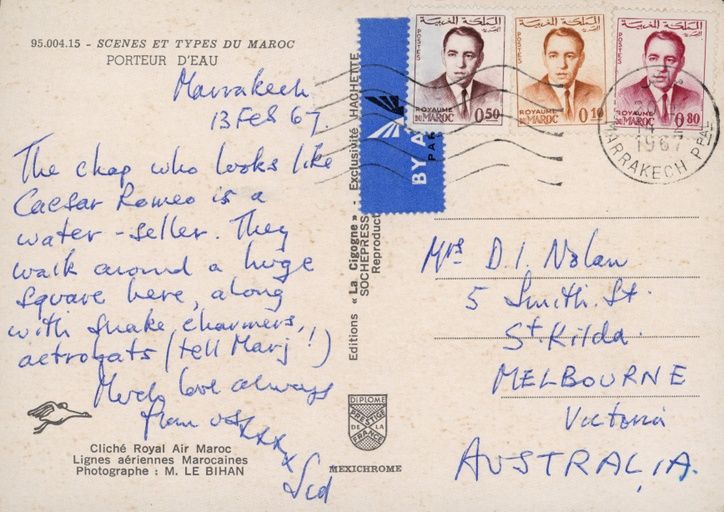 95.004.15 - SCENES ET TYPES DU MAROC
PORTEUR D'EAU
Marrakech
13 Feb 67
The chap who looks like
Caesar Romeo is a
water-seller. They
walk around a huge
square here, along
with snake charmers,
acrobats (tell Marj!)
Much love always
from us xxxx
Sid
Cliché Royal Air Maroc
Lignes aériennes Marocaines
Photographe : M. LE BIHAN
Editions « La Cigogne » - Exclusivité HACHETTE
SOCHEPRESS
Reproduct
BY A
PAR
المملكة المغربية
POSTES
ROYAUME
DU MAROC 0,50
المملكة المغربية
POSTES
ROYAUME
DU MAROC 0,10
المملكة المغربية
POSTES
ROYAUME
DU MAROC 0,80
1967
MARRAKECH PPAL
Mrs D. I. Nolan
5 Smith. St.
St. Kilda.
MELBOURNE
Victoria
AUSTRALIA.
DIPLOME
PRESTIGE
DE LA
FRANCE
MEXICHROME